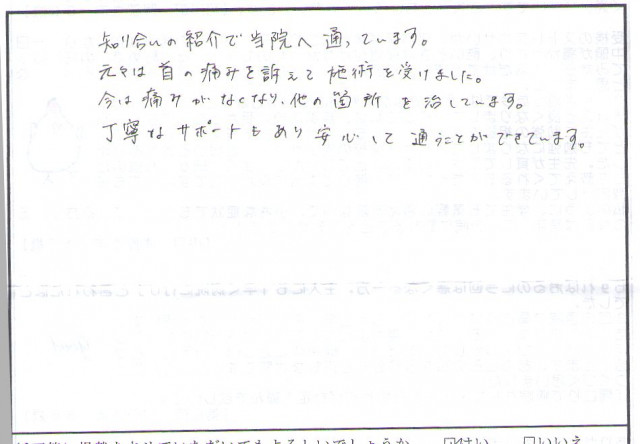 知り合いの紹介で当院へ通っています。
元々は首の痛みを訴えて施術を受けました。
今は痛みがなくなり、他の箇所を治しています。
丁寧なサポートもあり安心して通うことができています。
はい いいえ